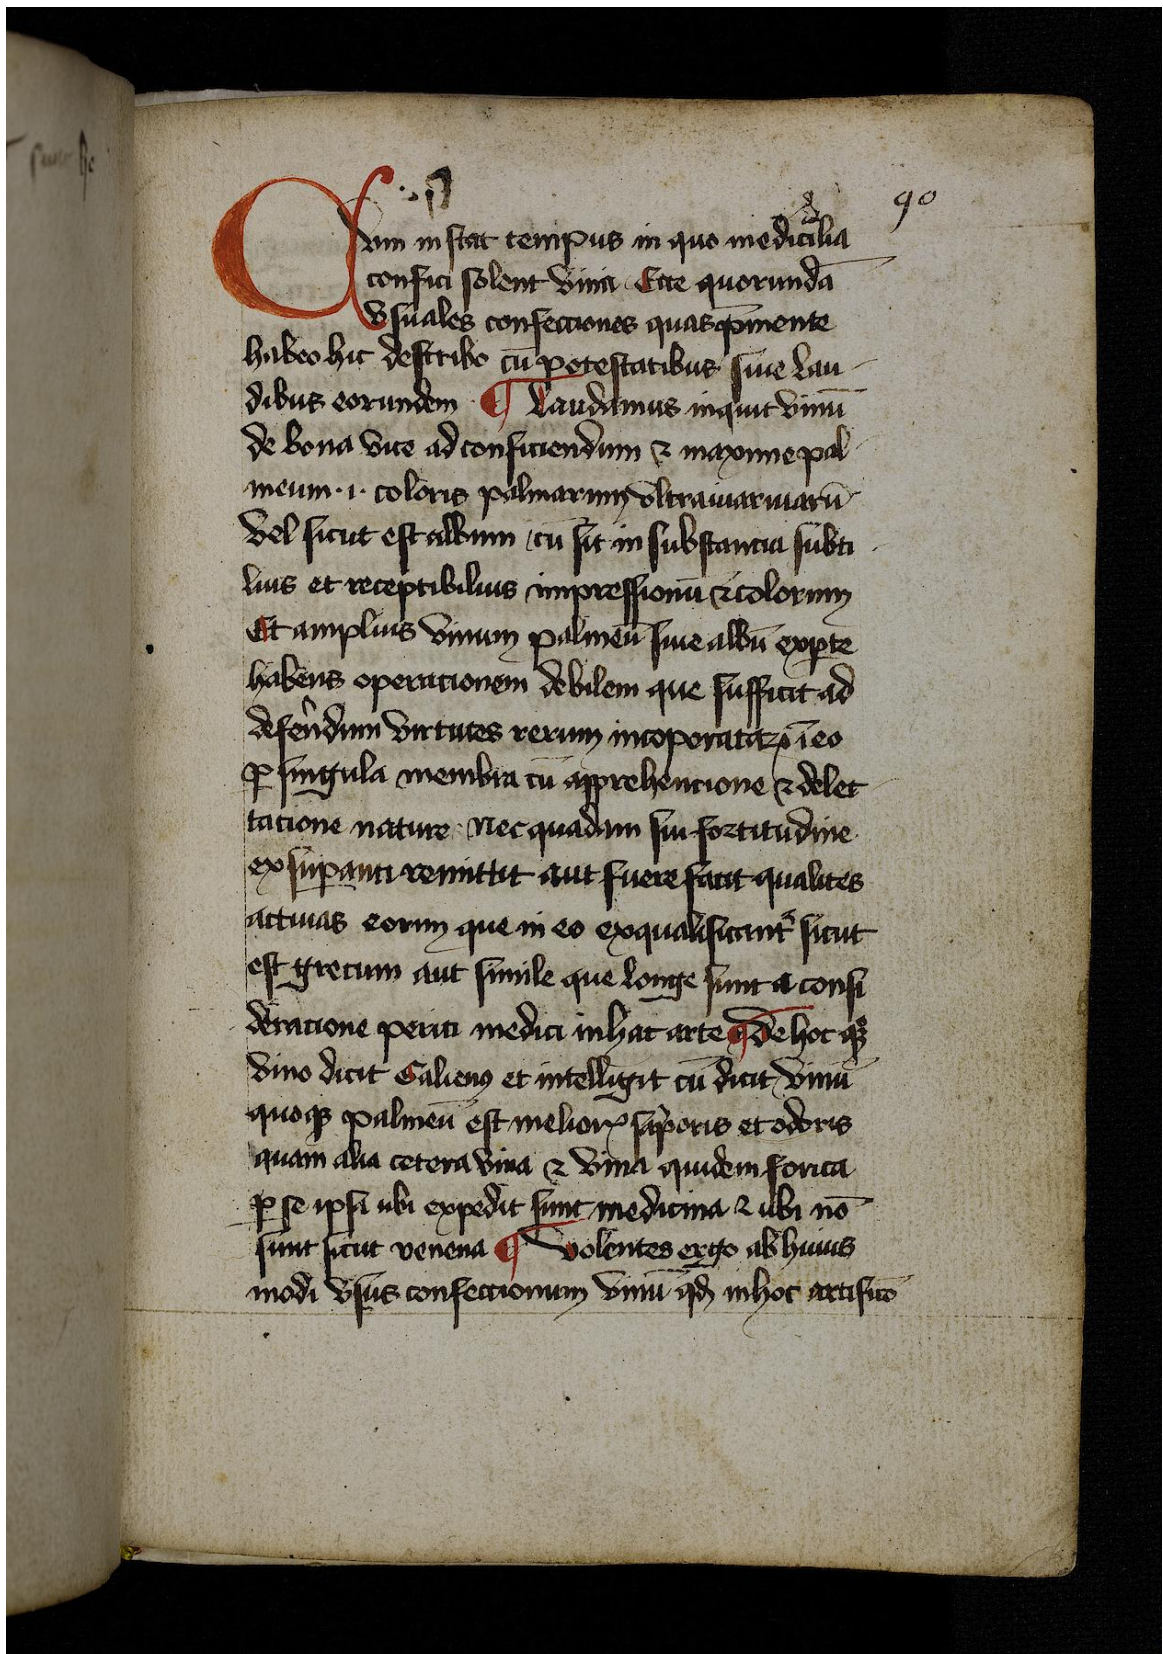 90
Cum instat tempus in quo medicialia
confici solent vina Ecce quorundā
vsuales confecciones quas pmente
habeo hic describo cū potestatibus siue lau
dibus eorundem ¶ Laudamus inquit vinū
de bona vite ad conficiendum ⁊ maxime pal
meum ·i· coloris palmarum vltramarinarū
Vel sicut est album cū sit in substancia subti
lius et receptibilius impressionū ⁊ colorum
Et amplius vinum palmeū siue albū ex pte
habens operacionem debilem que sufficit ad
defendum virtutes rerum incoporatarꝝ ī eo
ꝑ singula membra cū apprehencione ⁊ delec
tacione nature Nec quadam sui fortitudine
exsuꝑanti remittit aut fuere facit qualites
actiuas eorum que in eo exqualificantr sicut
est grecum aut simile que longe sunt a consi
deracione periti medici in hac arte ¶ De hoc qꝫ
vino dicit Galienꝰ et intelligit cū dicit vinū
quoqꝫ palmeū est meliorꝭ saporis et odoris
quam alia cetera vina ⁊ vina quidem forica
ꝑ se ipsi ubi expedit sunt medicina ⁊ ubi nō
sunt sicut venena ¶ Volentes ergo ab huius
modi vsus confectionum vinū qd in hoc artificō